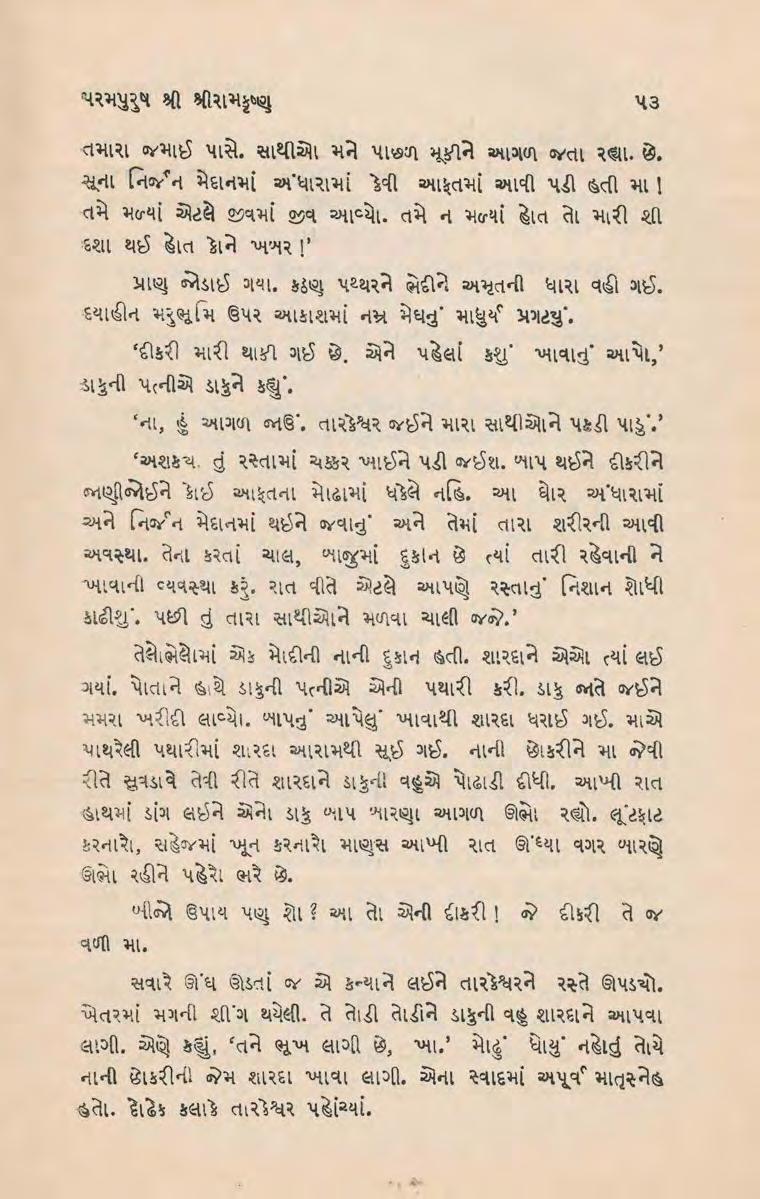 પરમપુરુષ શ્રી શ્રીરામકૃષ્ણ ૫૩
તમારા જમાઈ પાસે. સાથીઓ મને પાછળ મૂકીને આગળ જતા રહ્યા. છે.
સૂના નિર્જન મેદાનમાં અંધારામાં કેવી આફતમાં આવી પડી હતી મા !
તમે મળ્યાં એટલે જીવમાં જીવ આવ્યો. તમે ન મળ્યાં હોત તો મારી શી
દશા થઈ હોત કોને ખબર !’
પ્રાણ જોડાઈ ગયા. કઠણ પથ્થરને ભેદીને અમૃતની ધારા વહી ગઈ.
દયાહીન મરુભૂમિ ઉપર આકાશમાં નમ્ર મેઘનું માધુર્ય પ્રગટ્યું.
‘દીકરી મારી થાકી ગઈ છે. એને પહેલાં કશું ખાવાનું આપો,’
ડાકુની પત્નીએ ડાકુને કહ્યું.
‘ના, હું આગળ જાઉં. તારકેશ્વર જઈને મારા સાથીઓને પકડી પાડું.’
‘અશક્ય. તું રસ્તામાં ચક્કર ખાઈને પડી જઈશ. બાપ થઈને દીકરીને
જાણીજોઈને કોઈ આફતના મોઢામાં ધકેલે નહિ. આ ઘોર અંધારામાં
અને નિર્જન મેદાનમાં થઈને જવાનું અને તેમાં તારા શરીરની આવી
અવસ્થા. તેના કરતાં ચાલ, બાજુમાં દુકાન છે ત્યાં તારી રહેવાની ને
ખાવાની વ્યવસ્થા કરું. રાત વીતે એટલે આપણે રસ્તાનું નિશાન શોધી
કાઢીશું. પછી તું તારા સાથીઓને મળવા ચાલી જજે.’
તેલોભેલોમાં એક મોદીની નાની દુકાન હતી. શારદાને એઓ ત્યાં લઈ
ગયાં. પોતાને હાથે ડાકુની પત્નીએ એની પથારી કરી. ડાકુ જાતે જઈને
મમરા ખરીદી લાવ્યો. બાપનું આપેલું ખાવાથી શારદા ધરાઈ ગઈ. માએ
પાથરેલી પથારીમાં શારદા આરામથી સૂઈ ગઈ. નાની છોકરીને મા જેવી
રીતે સુવડાવે તેવી રીતે શારદાને ડાકુની વહુએ પોઢાડી દીધી. આખી રાત
હાથમાં ડાંગ લઇને એનો ડાકુ બાપ બારણા આગળ ઊભો રહ્યો. લૂંટફાટ
કરનારો, સહેજમાં ખૂન કરનારો માણસ આખી રાત ઊંઘ્યા વગર બારણે
ઊભો રહીને પહેરો ભરે છે.
બીજો ઉપાય પણ શો ? આ તો એની દીકરી ! જે દીકરી તે જ
વળી મા.
સવારે ઊંઘ ઊડતાં જ એ કન્યાને લઈને તારકેશ્વરને રસ્તે ઊપડયો.
ખેતરમાં મગની શીંગ થયેલી. તે તોડી તોડીને ડાકુની વહુ શારદાને આપવા
લાગી. એણે કહ્યું, ‘તને ભૂખ લાગી છે, ખા.’ મોઢું ધોયું નહોતું તોયે
નાની છોકરીની જેમ શારદા ખાવા લાગી. એના સ્વાદમાં અપૂર્વ માતૃસ્નેહ
હતો. દોઢેક કલાકે તારકેશ્વર પહોંચ્યાં.